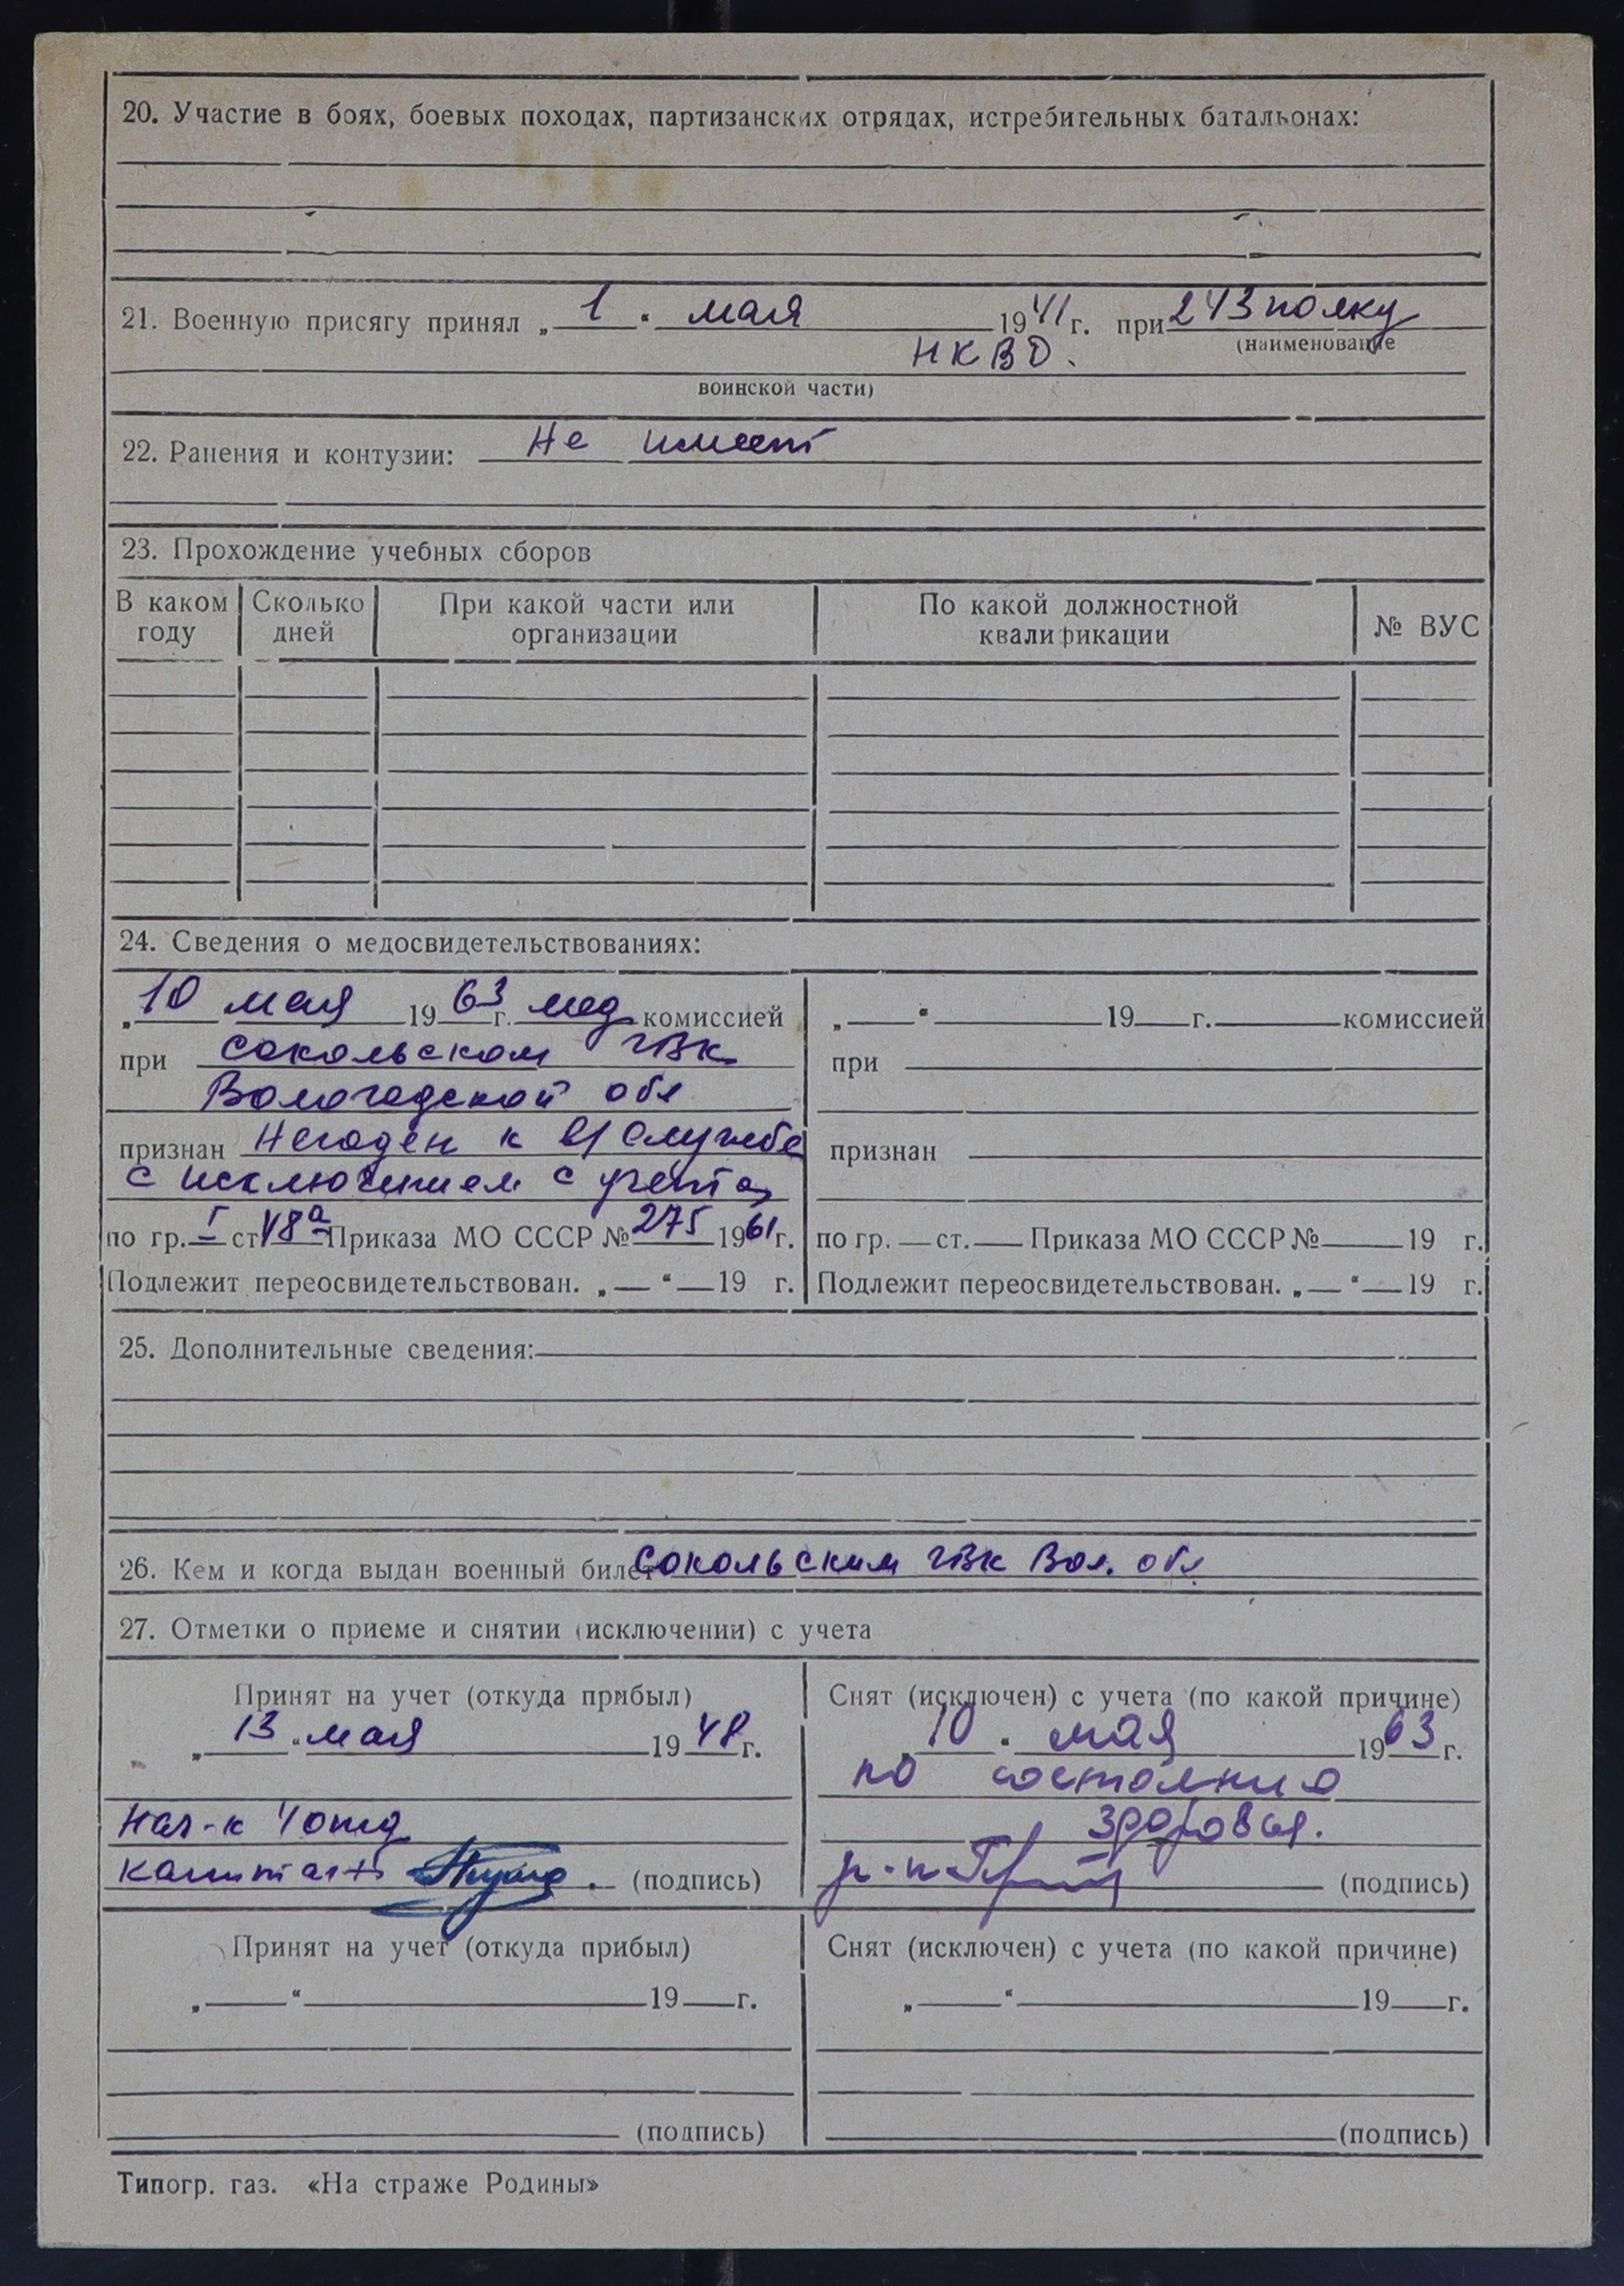 20. Участие в боях, боевых походах, партизанских отрядах, истребительных батальонах:
21. Военную присягу принял „ 1 “ мая 1941 г. при 243 полку
(наименование
НКВД.
воинской части)
22. Ранения и контузии: Не имеет
23. Прохождение учебных сборов
В каком году | Сколько дней | При какой части или организации | По какой должностной квалификации | № ВУС
24. Сведения о медосвидетельствованиях:
„10 мая 1963 г. мед комиссией
при Сокольском ГВК
Вологодской обл
признан Негоден к в/службе
с исключением с учета
по гр. I ст. 48а Приказа МО СССР № 275 1961 г.
Подлежит переосвидетельствован. „ “ 19 г.
„ “ 19 г. комиссией
при
признан
по гр. ст. Приказа МО СССР № 19 г.
Подлежит переосвидетельствован. „ “ 19 г.
25. Дополнительные сведения:
26. Кем и когда выдан военный билет Сокольским ГВК Вол. обл
27. Отметки о приеме и снятии (исключении) с учета
Принят на учет (откуда прибыл)
„ 13 “ мая 1948 г.
Нач-к 4 отд
капитан (подпись)
Снят (исключен) с учета (по какой причине)
„ 10 “ мая 1963 г.
по состоянию
здоровья.
(подпись)
Принят на учет (откуда прибыл)
„ “ 19 г.
(подпись)
Снят (исключен) с учета (по какой причине)
„ “ 19 г.
(подпись)
Типогр. газ. «На страже Родины»